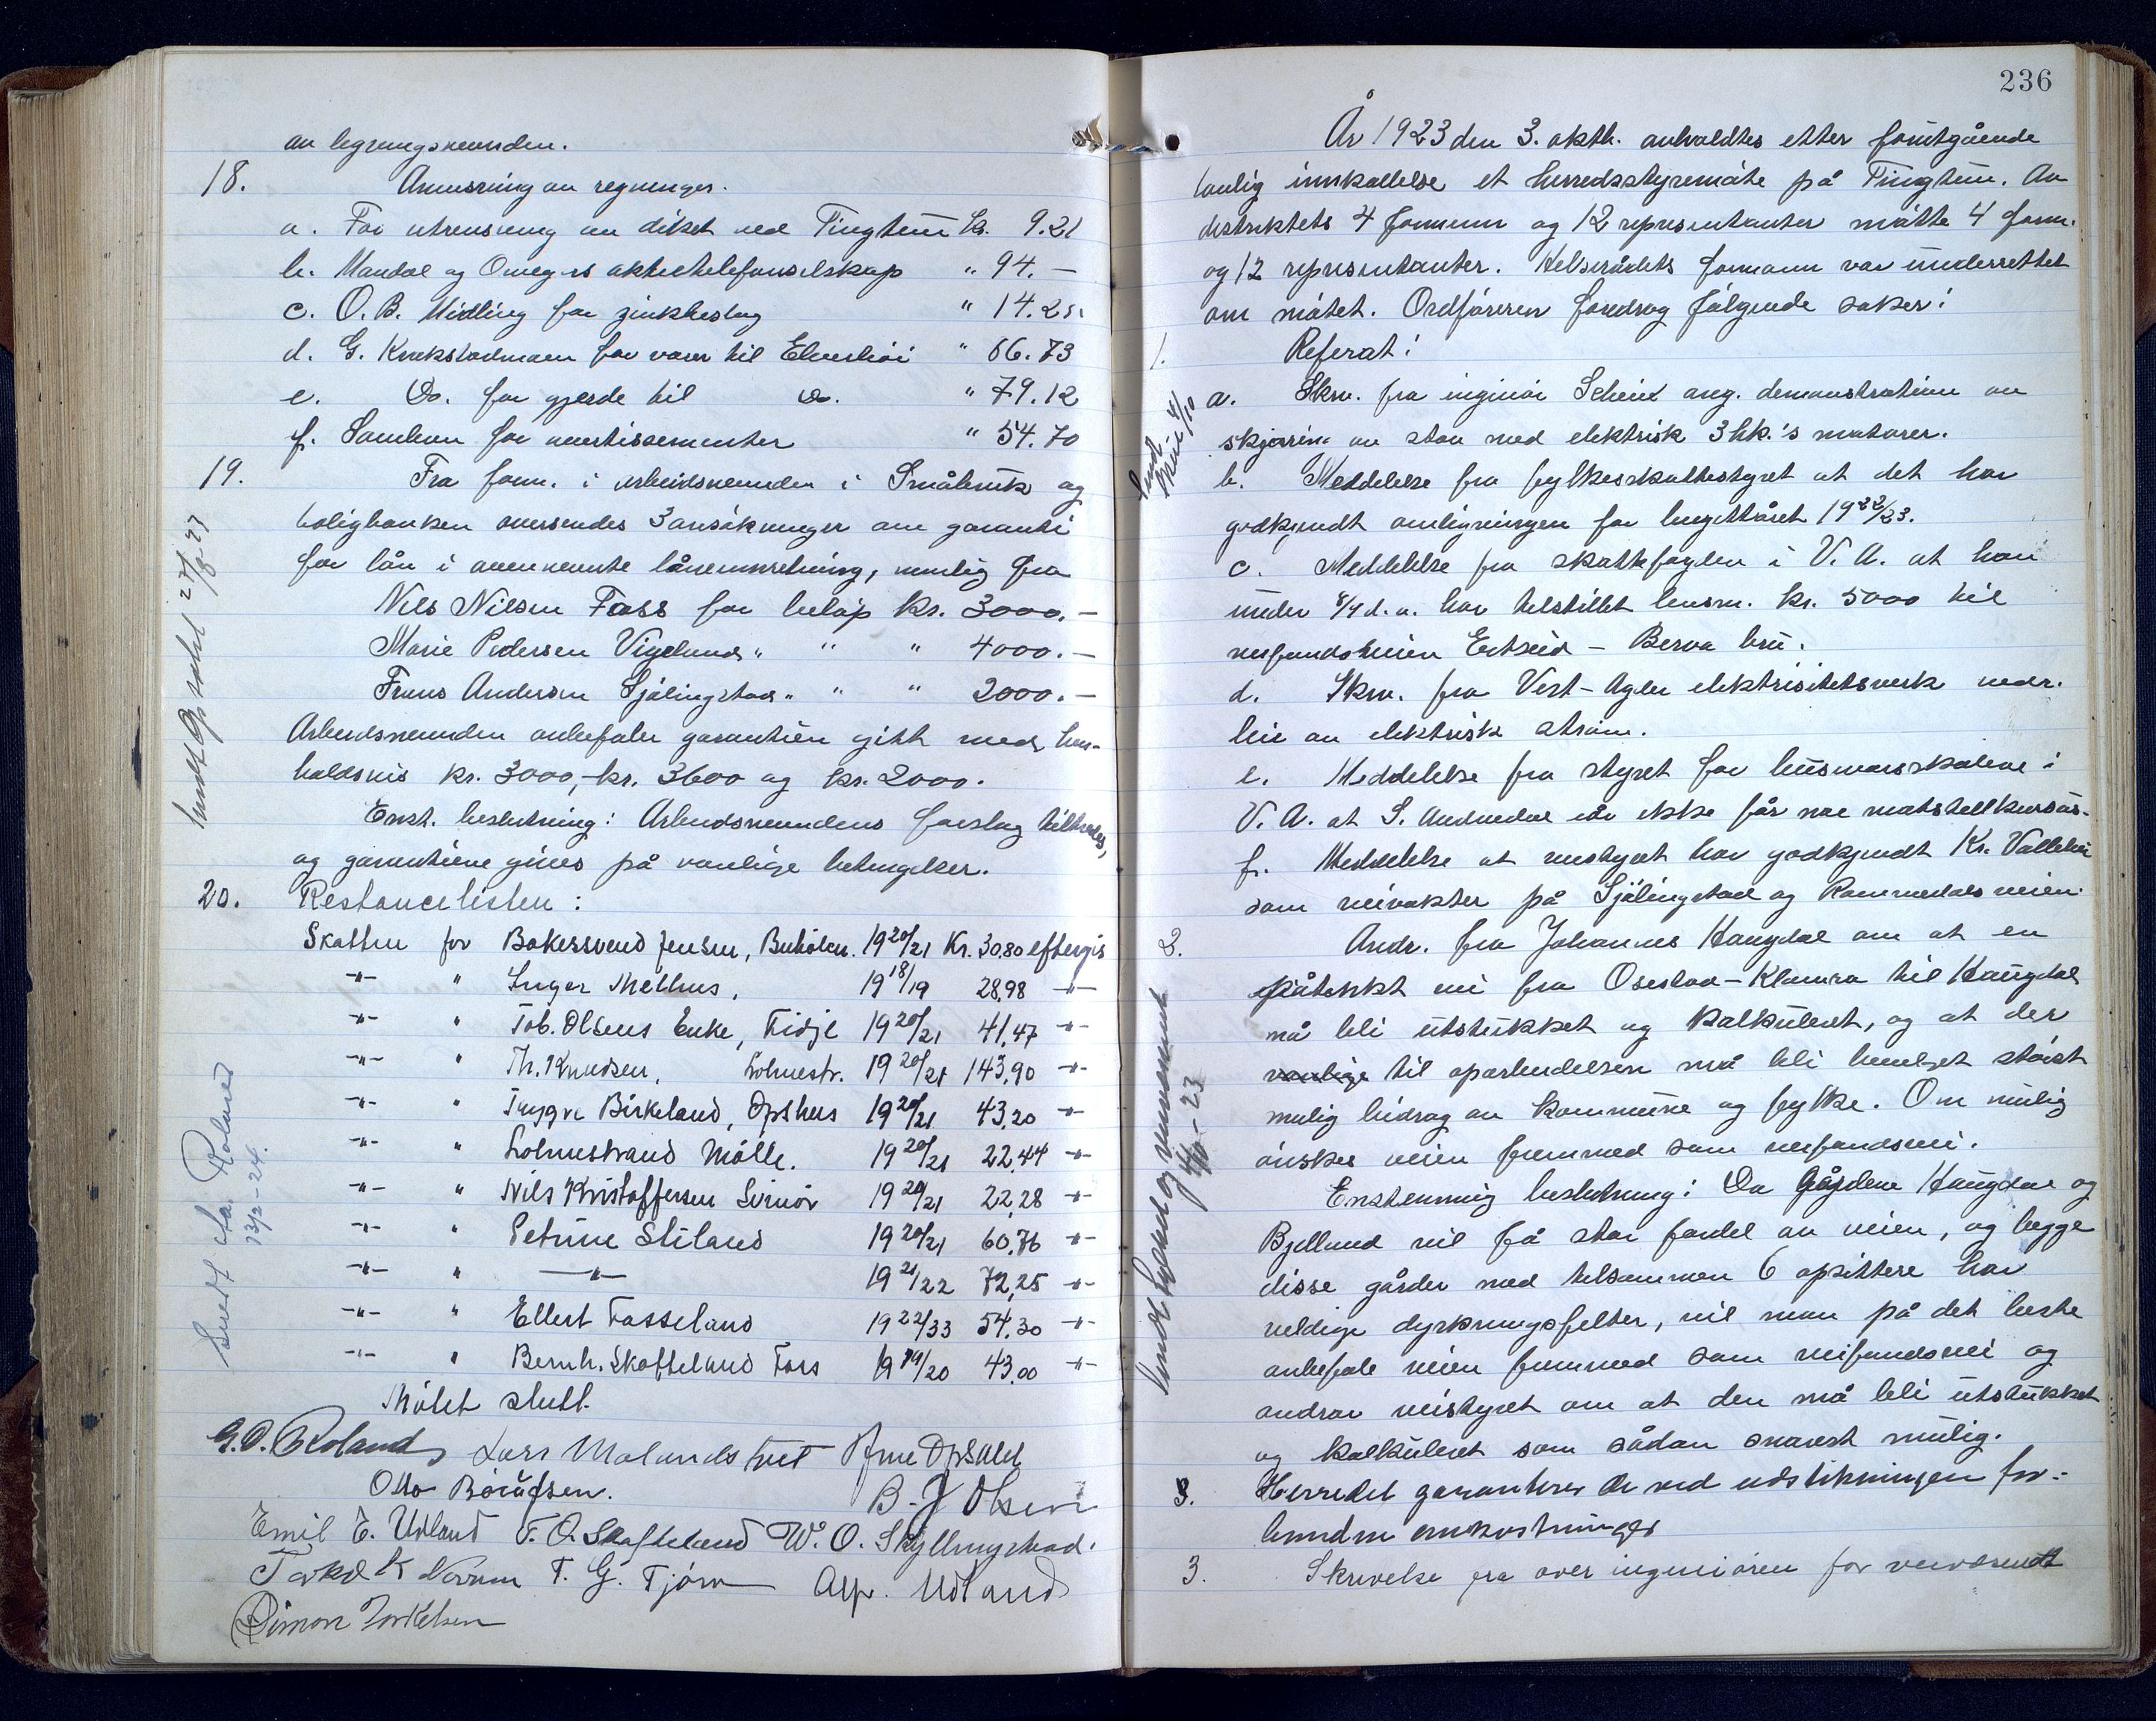 av legningsnevnden.
18. Anvisning av regninger.
a. For utrensning av diket ved Tingtun kr. 9.21
b. Mandal og Omegns aktietelefonselskap " 94.-
c. O. B. Midling for zinkbeslag " 14.25
d. G. Knekstadmoen for varer til Elvestøi " 66.73
e. Do. for gjerde til Do. " 79.12
f. Samhun for avertissementer " 54.70
19. Fra form. i arbeidsnevnden i Småbruk og
boligbanken oversendes 3 ansøkninger om garanti
for lån i ovennevnte låneinnretning, nemlig fra
Nils Nilsen Foss for beløp kr. 3000.-
Marie Pedersen Vigeland " " " 4000.-
Frans Andersen Sjølingstad " " " 2000.-
Arbeidsnevnden anbefaler garantien gitt med hen-
holdsvis kr. 3000,- kr. 3600 og kr. 2000.
Enst. beslutning: Arbeidsnevndens forslag tiltredes,
og garantiene gives på vanlige betingelser.
20. Restancelisten:
Skatten for Bakersvend Jensen, Buhølen. 1920/21 Kr. 30.80 eftergis
-"- " Inger Melhus, 1918/19 28,98 -"-
-"- " Tob. Olsens Enke, Tidje 1920/21 41,47 -"-
-"- " Th. Knudsen, Lohnestr. 1920/21 143,90 -"-
-"- " Trygve Birkeland, Opshus 1920/21 43,20 -"-
-"- " Lohnestrand Mølle. 1920/21 22,44 -"-
-"- " Nils Kristoffersen Svinør 1920/21 22,28 -"-
-"- " Petrine Stiland 1920/21 60,76 -"-
-"- " -"- 1921/22 72,25 -"-
-"- " Ellert Fasseland 1922/33 54,30 -"-
-"- " Bernh. Skoffeland Foss 1919/20 43,00 -"-
Møtet slutt.
G. O. Roland Lars Molandstveit Arne Opsahl
Otto BØrufsen. B. J Olsen
Emil E. Udland T. O. Skofteland W. O. Skyllingstad.
Torkel K Norum T. G. Tjørn Asp. Udland
Simon Torkelsen
Sendt fra Roland
13/2-24.
236
År 1923 den 3. oktb. avholdtes etter forutgående
lovlig innkallelse et herredsstyremøte på Tingtun. Av
distriktets 4 formenn og 12 representanter møtte 4 form.
og 12 representanter. Helserådets formann var underrettet
om møtet. Ordføreren foredrog følgende saker:
1. Referat:
a. Skrv. fra ingeniør Scheie ang. demonstrasjon av
skjæring av sten med elektrisk 3 hk.'s motorer.
b. Meddelelse fra fylkesskattestyret at det har
godkjendt omligningen for budgettåret 1922/23.
c. Meddelelse fra skattefogden i V. A. at han
under 8/9 d. å. har tilstillet lensm. kr. 5000 til
veifondsveien Eitseid - Berva bru.
d. Skrv. fra Vest-Agder elektrisitetsverk vedr.
leie av elektrisk strøm.
e. Meddelelse fra styret for husmorskolene i
V. A. at S. Audnedal i år ikke får noe matstellkursus.
f. Meddelelse at veistyret har godkjendt Kr. Valleheia
som veivokter på Sjølingstad og Rommedalsveien.
2. Andr. fra Johannes Haugdal om at en
påtenkt vei fra Osestad-Klamra til Haugdal
må bli utstukket og kalkulert, og at der
vanlige til oparbeidelsen må bli bevilget størst
mulig bidrag av kommune og fylke. Om mulig
ønskes veien fremmed som veifondsvei.
Enstemmig beslutning: Da gårdene Haugdal og
Bjelland vil få stor fordel av veien, og begge
disse gårder med tilsammen 6 opsittere har
veldige dyrkningsfelter, vil man på det beste
anbefale veien fremmed som veifondsvei og
andrar veistyret om at den må bli utstukket
og kalkulert som sådan snarest mulig.
Herredet garanterer de ved utstikningen for-
bundne omkostninger
3. Skrivelse fra overingeniøren for veivesenet